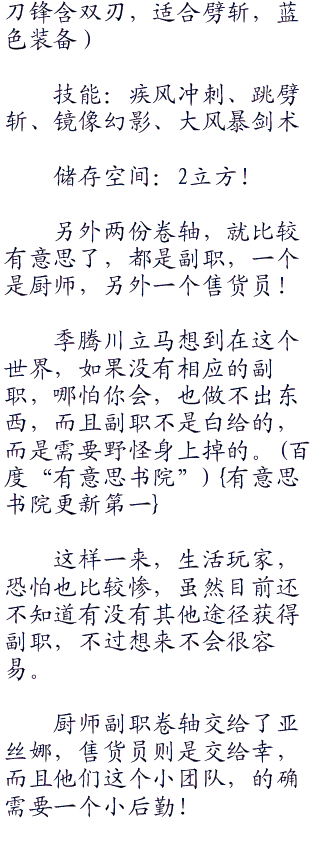 刀锋含双刃，适合劈斩，蓝
色装备）
技能：疾风冲刺、跳劈
斩、镜像幻影、大风暴剑术
储存空间：2立方！
另外两份卷轴，就比较
有意思了，都是副职，一个
是厨师，另外一个售货员！
季腾川立马想到在这个
世界，如果没有相应的副
职，哪怕你会，也做不出东
西，而且副职不是白给的，
而是需要野怪身上掉的。（百
度“有意思书院”）{有意思
书院更新第一}
这样一来，生活玩家，
恐怕也比较惨，虽然目前还
不知道有没有其他途径获得
副职，不过想来不会很容
易。
厨师副职卷轴交给了亚
丝娜，售货员则是交给幸，
而且他们这个小团队，的确
需要一个小后勤！